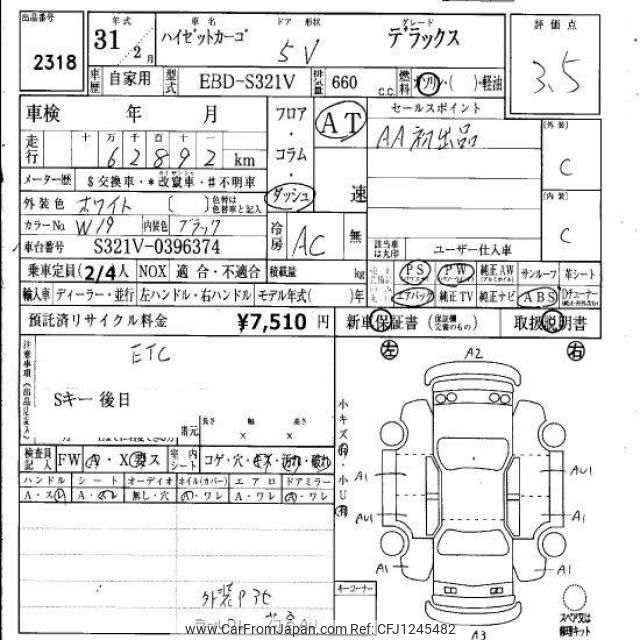 出品番号
2318
年式
31 / 2 月
車名
ハイゼットカーゴ
ドア 形状
5V
グレード
デラックス
評価点
3.5
車歴 自家用 型式 EBD-S321V 排気量 660 c.c. 燃料 ガソリン・( )・軽油
車検 年 月
フロア・コラム・ダッシュ
AT
速
セールスポイント
AA初出品
[外装]
C
[内装]
C
走行 十 万 千 百 十 一
6 2 8 9 2 km
メーター歴 $ 交換車・* 改竄車・# 不明車
外装色 ホワイト ( ) 色替は色替車と記入
カラーNo W19 内装色 ブラック
冷房 AC 無
車台番号 S321V-0396374
該当車は丸印
ユーザー仕入車
乗車定員 2/4人 NOX 適合・不適合 積載量 kg
PS PW 純正AW サンルーフ 革シート
輸入車 ディーラー・並行 左ハンドル・右ハンドル モデル年式( )年
エアバック 純正TV 純正ナビ ABS Dチューナー
預託済リサイクル料金 ¥7,510 円 新車保証書 (保証欄完備のもの) 取扱説明書
注意事項《出品店記入》
ETC
Sキー 後日
諸元 長さ × 幅 × 高さ
左 A2 右
小キズ有・小U有
検査員記入 FW A・X 要ス 室内シート コゲ・穴・キズ・汚れ・破れ
ハンドル シート オーディオ ホイル(カバー) エアロ ドアミラー
A・スレ A・ワレ 無し・穴 A・ワレ A・ワレ A・ワレ
A1 AU1
AU1 A1
A1 A1
外装P3セ
キーコーナー
スペア又は修理キット
A3
www.CarFromJapan.com Ref: CFJ1245482